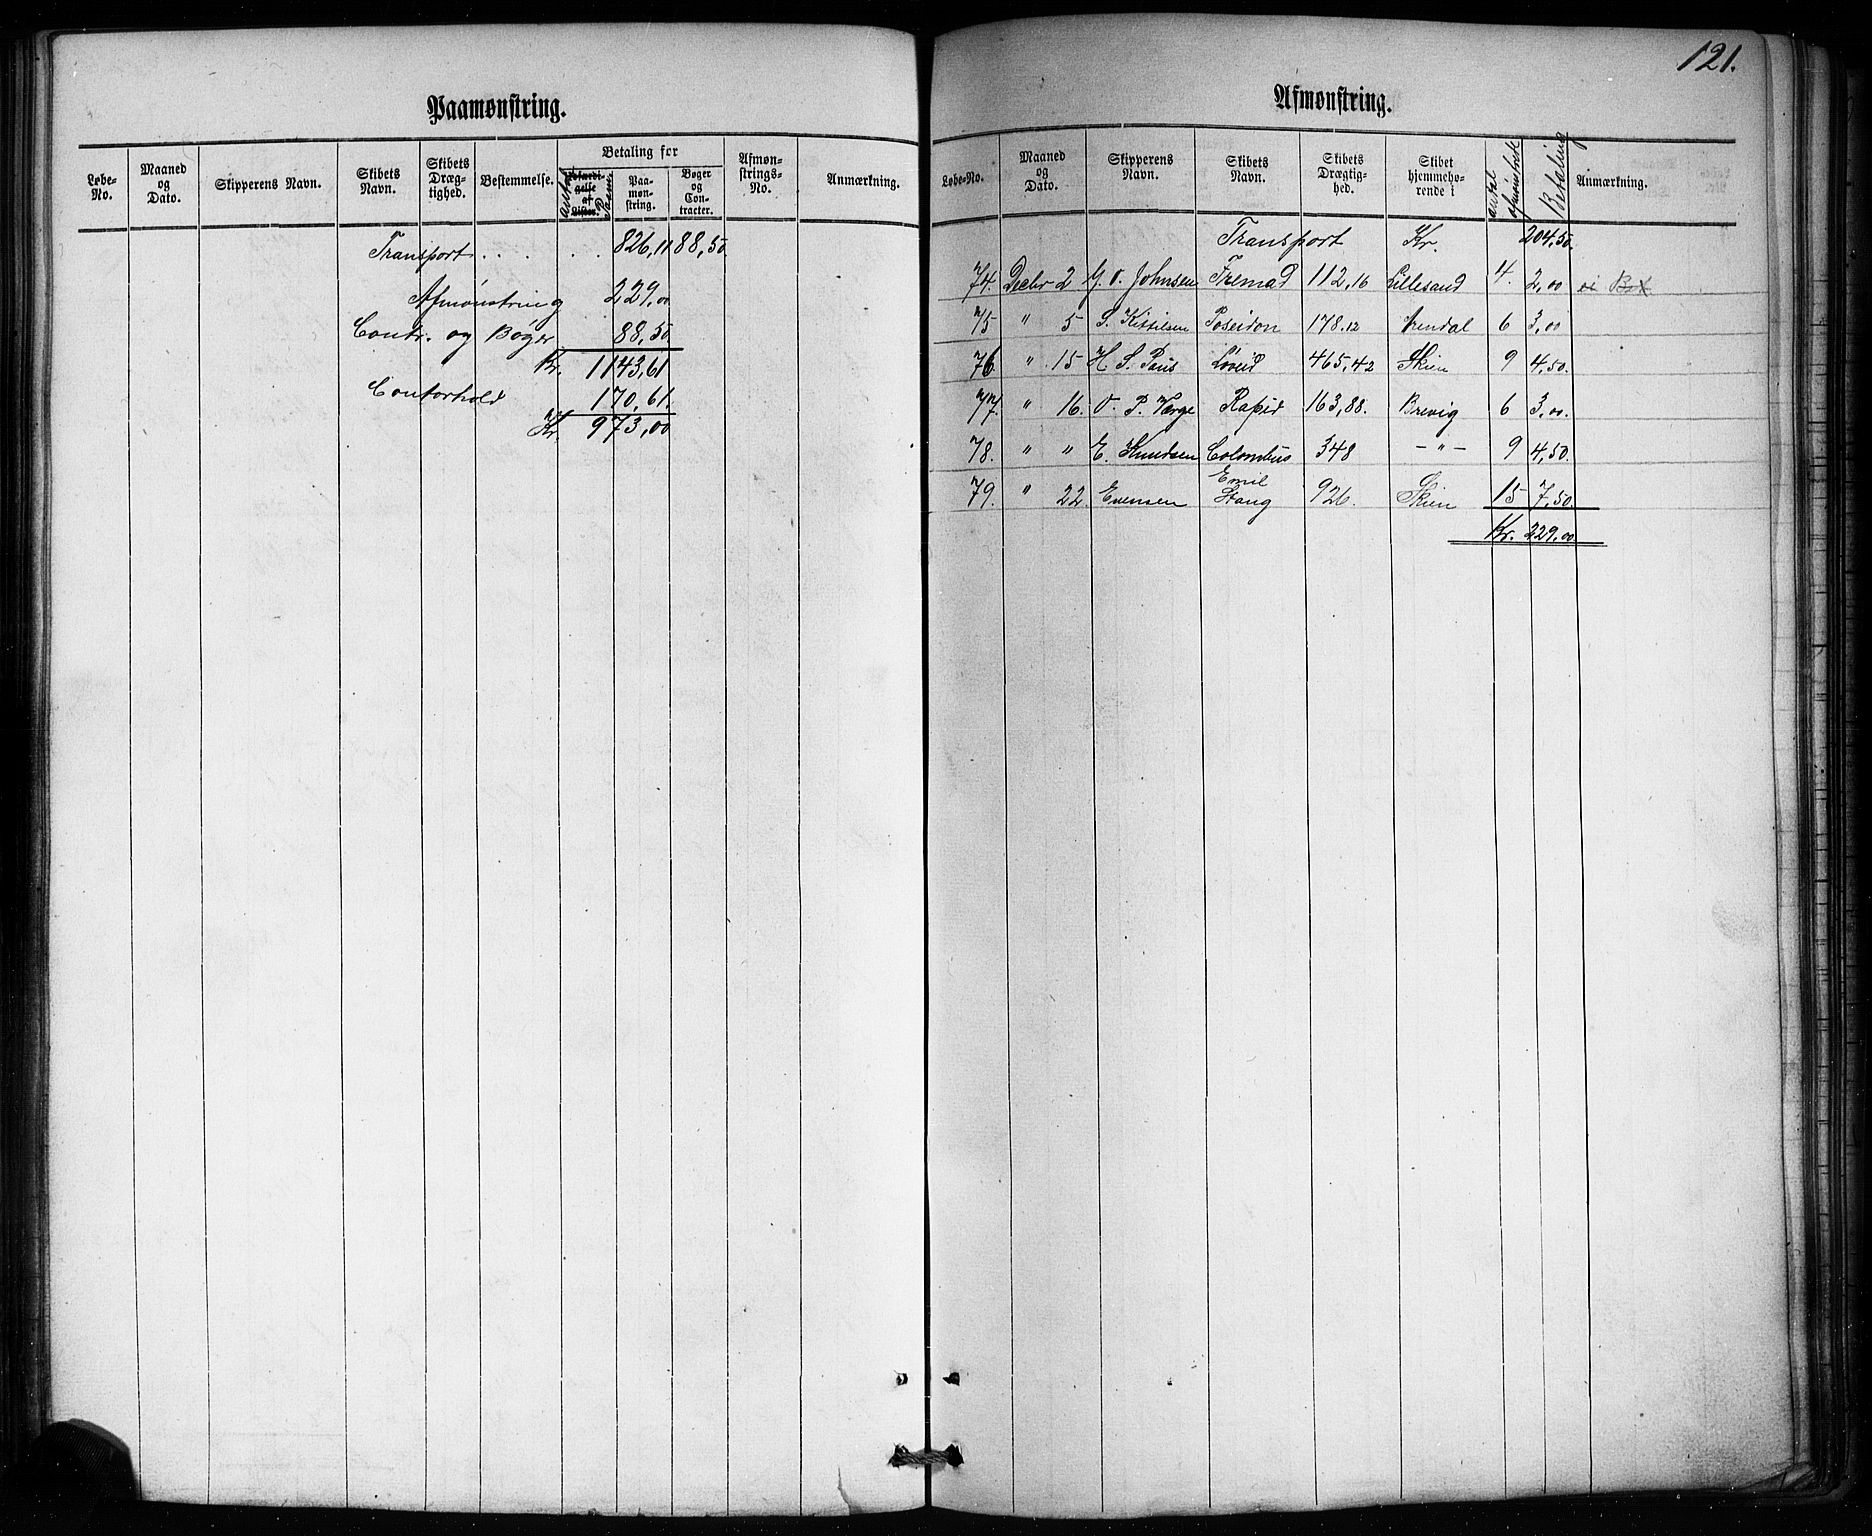 121.
Paamønstring.
Løbe-No.
Maaned og Dato.
Skipperens Navn.
Skibets Navn.
Skibets Dræg-tighed.
Bestemmelse.
Betaling for
Antal Paam.
Paa-mon-string.
Bøger og Con-tracter.
Afmøn-strings-No.
Anmærkning.
Transport . . . . . . 826,11 88,50
Afmønstring 229,00
Contr. og Bøger 88,50
Kr. 1143,61
Contorhold 170,61.
Kr. 973,00
Afmønstring.
Løbe-No.
Maaned og Dato.
Skipperens Navn.
Skibets Navn.
Skibets Drægtig-hed.
Skibet hjemmehø-rende i
antal afmønstrede
Betaling
Anmærkning.
Transport Kr. 204,50.
74. Decbr 2 Johnsen Fremad 112,16 Lillesand 4. 2,00
75 " 5 S. Kittilsen Poseidon 178.12 Arendal 6 3,00
76 " 15 H. S. Paus Løveid 465,42 Skien 9 4,50.
77. " 16. O. P. Værge Rapid 163,88. Brevig 6 3,00.
78. " " E. Knudsen Colombus 348 - " - 9 4,50
79. " 22. Evensen Emil Stang 926. Skien 15 7,50.
Kr. 229,00